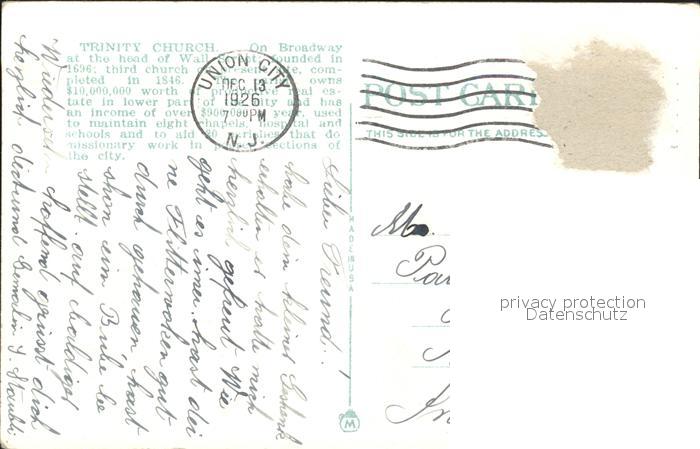 TRINITY CHURCH. On Broadway
at the head of Wall founded in
1696; third church com-
pleted in 1846. owns
$10,000,000 worth es-
tate in lower part of and has
an income of over year, used
to maintain eight chapels, hospital and
schools and to aid that do
missionary work in sections of
the city.
UNION CITY
DEC 13
1926
7 PM
N. J.
POST CAR
THIS SIDE IS FOR THE ADDRESS
MADE IN USA
Lieber Freund!
habe dein kleines Geschenk
erhalten es hatte mich
herzlich gefreut Wie
geht es immer. hast dei
ne Flitterwochen gut
durch gehauen hast
schon ein Bube be
stellt. auf baldiges
Wiedersehn hoffend grüsst dich
herzlich dich und Gemalin
M
privacy protection
Datenschutz